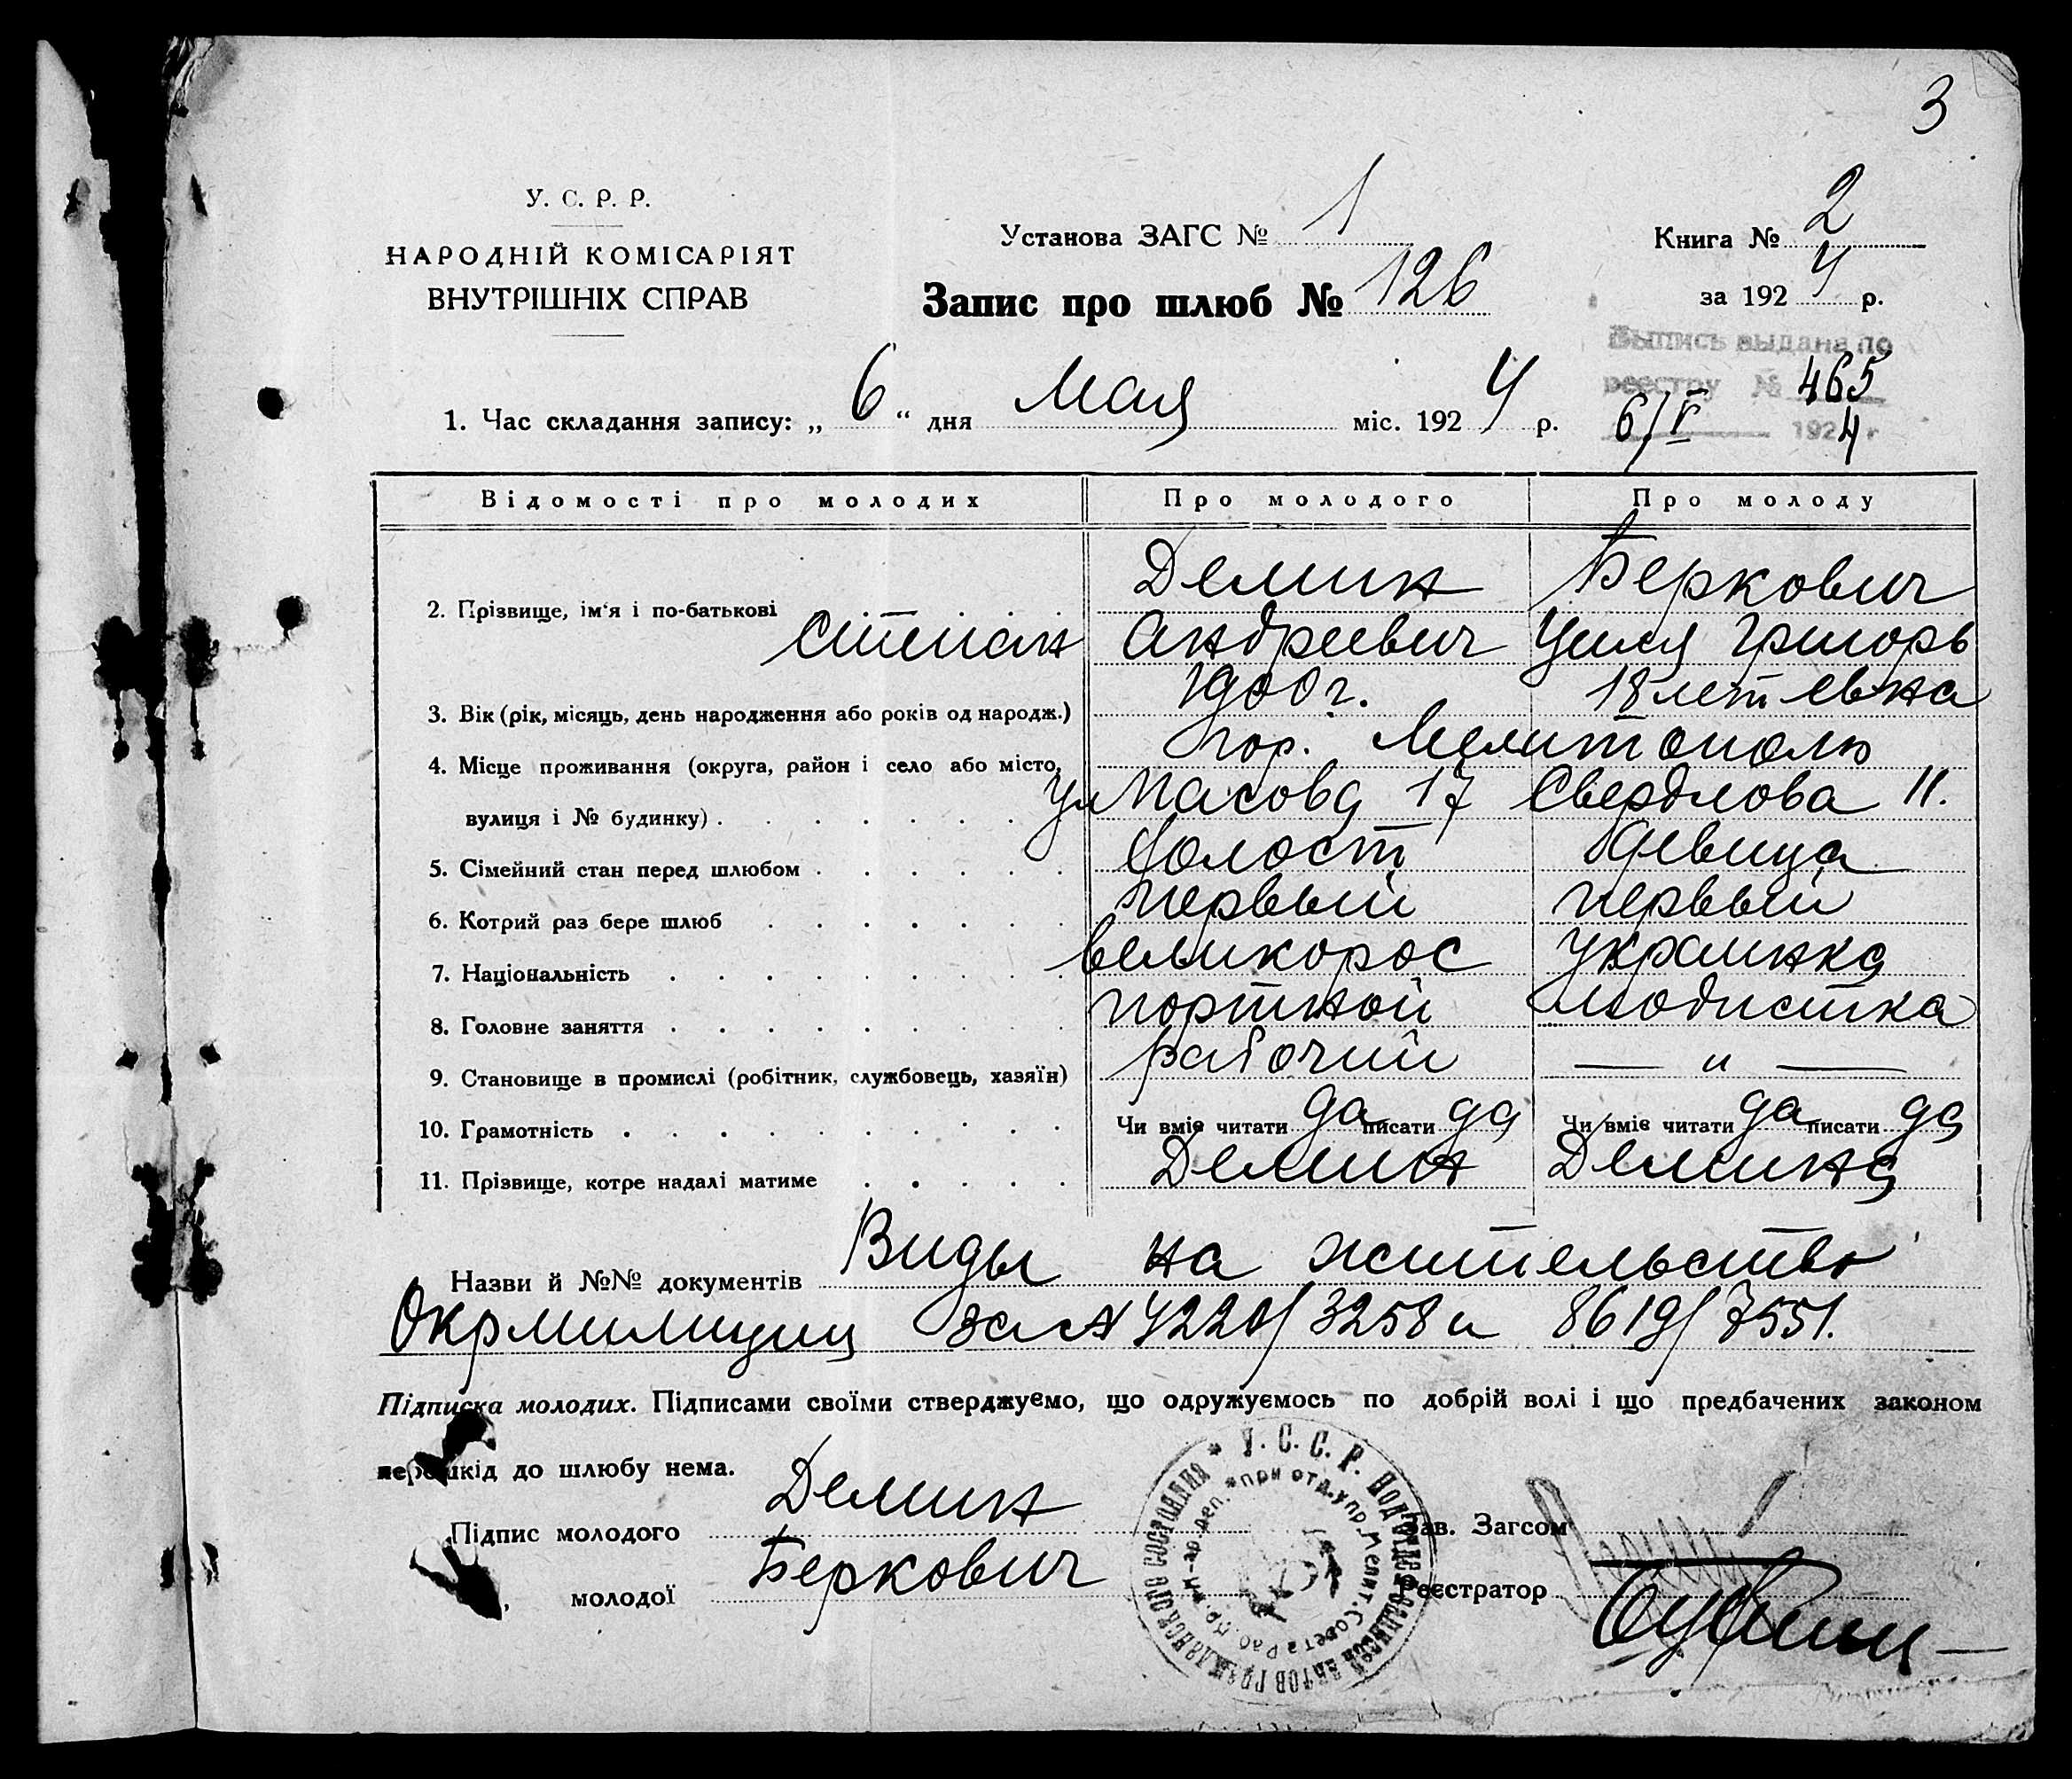 3
У. С. Р. Р.
НАРОДНІЙ КОМІСАРІЯТ
ВНУТРІШНІХ СПРАВ
Установа ЗАГС № 1
Книга № 2
Запис про шлюб № 126
за 1924 р.
Выпись выдана по
реестру № 465
6/V 1924 г
1. Час складання запису: „ 6 “ дня Мая міс. 1924 р.
Відомості про молодих Про молодого Про молоду
Демин Беркович
2. Прізвище, ім‘я і по-батькові Степан Андреевич Циля Григорь
3. Вік (рік, місяць, день народження або років од народж.) 1900 г. 18 лет евна
4. Місце проживання (округа, район і село або місто, гор. Мелитополь
вулиця і № будинку) ул 17 Свердлова 11.
5. Сімейний стан перед шлюбом Холост девица
6. Котрий раз бере шлюб первый первый
7. Національність великорос украинка
8. Головне заняття портной модистка
9. Становище в промислі (робітник, службовець, хазяїн) рабочий — „ —
10. Грамотність Чи вміє читати да писати да Чи вміє читати да писати да
11. Прізвище, котре надалі матиме Демин Демина
Назви й №№ документів Виды на жительство
Окрмилиции за № 4220/3258 и 8619/7551.
Підписка молодих. Підписами своїми стверджуємо, що одружуємось по добрій волі і що предбачених законом
перешкід до шлюбу нема.
Підпис молодого Демин
Зав. Загсом
„ молодої Беркович
Реєстратор
У. С. С. Р. ПОДОТДЕЛ ЗАПИСЕЙ АКТОВ ГРАЖДАНСКОГО СОСТОЯНИЯ
при отд. упр. Мелит. Совета Раб. Кр. и Кр-ар. деп.